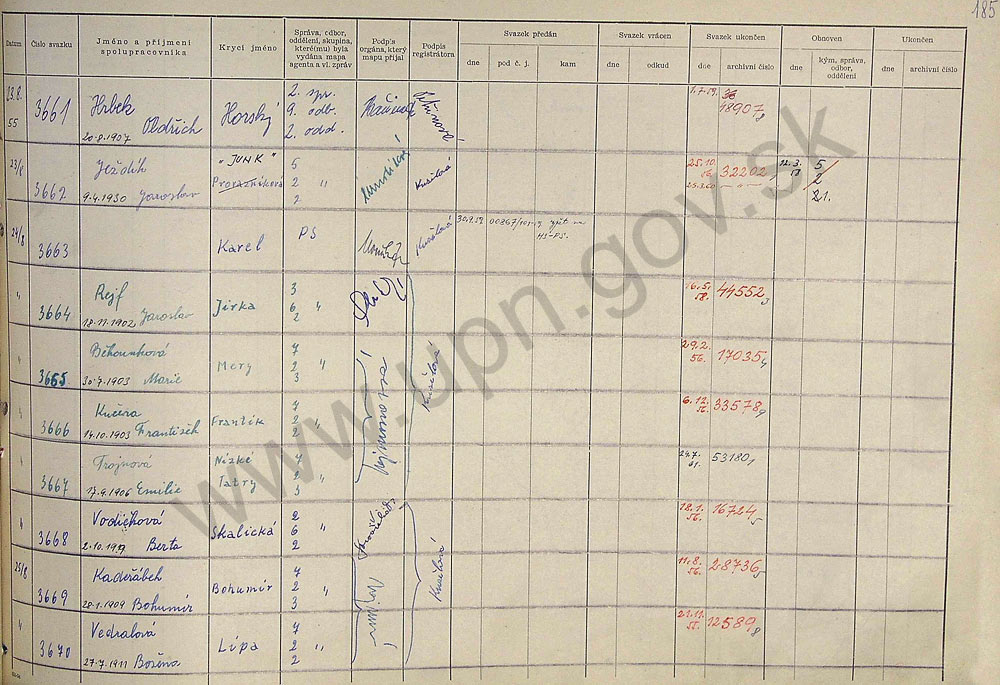 185
Datum
Číslo svazku
Jméno a příjmení spolupracovníka
Krycí jméno
Správa, odbor, oddělení, skupina, které(mu) byla vydána mapa agenta a vl. zpráv
Podpis orgána, který mapu přijal
Podpis registrátora
Svazek předán
dne
pod č. j.
kam
Svazek vrácen
dne
odkud
Svazek ukončen
dne
archivní číslo
Obnoven
dne
kým, správa, odbor, oddělení
Ukončen
dne
archivní číslo
23.8. 55
3661
Hrbek
20.8.1907 Oldřich
Horský
2. spr.
9. odb.
2. odd.
48907 8
23/8
3662
Ježdík
9.4.1930 Jaroslav
"JUNK"
Provazníková
5
2 "
2
Kusilová
25.10. 56. 32202
25.3.60 - " -
12.3.
5
2
21.
24/8
3663
Karel
PS
Kusilová
30.9.59
"
3664
Rejf
18.11.1902 Jaroslav
Jirka
3
6 "
2
16.5. 58. 44552 3
"
3665
Běhounková
30.7.1903 Marie
Mery
7
2 "
3
Kusilová
29.2. 56. 17035 4
"
3666
Kučera
14.10.1903 František
Frantík
7
2
2
6.12. 33578 9
"
3667
Trojnová
17.9.1906 Emilie
Nízké
Tatry
7
2 "
3
24.7. 61. 53180 1
"
3668
Vodičková
Berta
Skalická
2
6 "
2
18.1. 56. 16724 5
25/8
3669
Kadeřábek
28.1.1909 Bohumír
Bohumír
7
2 "
3
Kusilová
11.8. 56. 28736 5
"
3670
Vedralová
27.7.1911 Božena
Lípa
7
2 "
2
21.11. 12589 8
www.upn.gov.sk